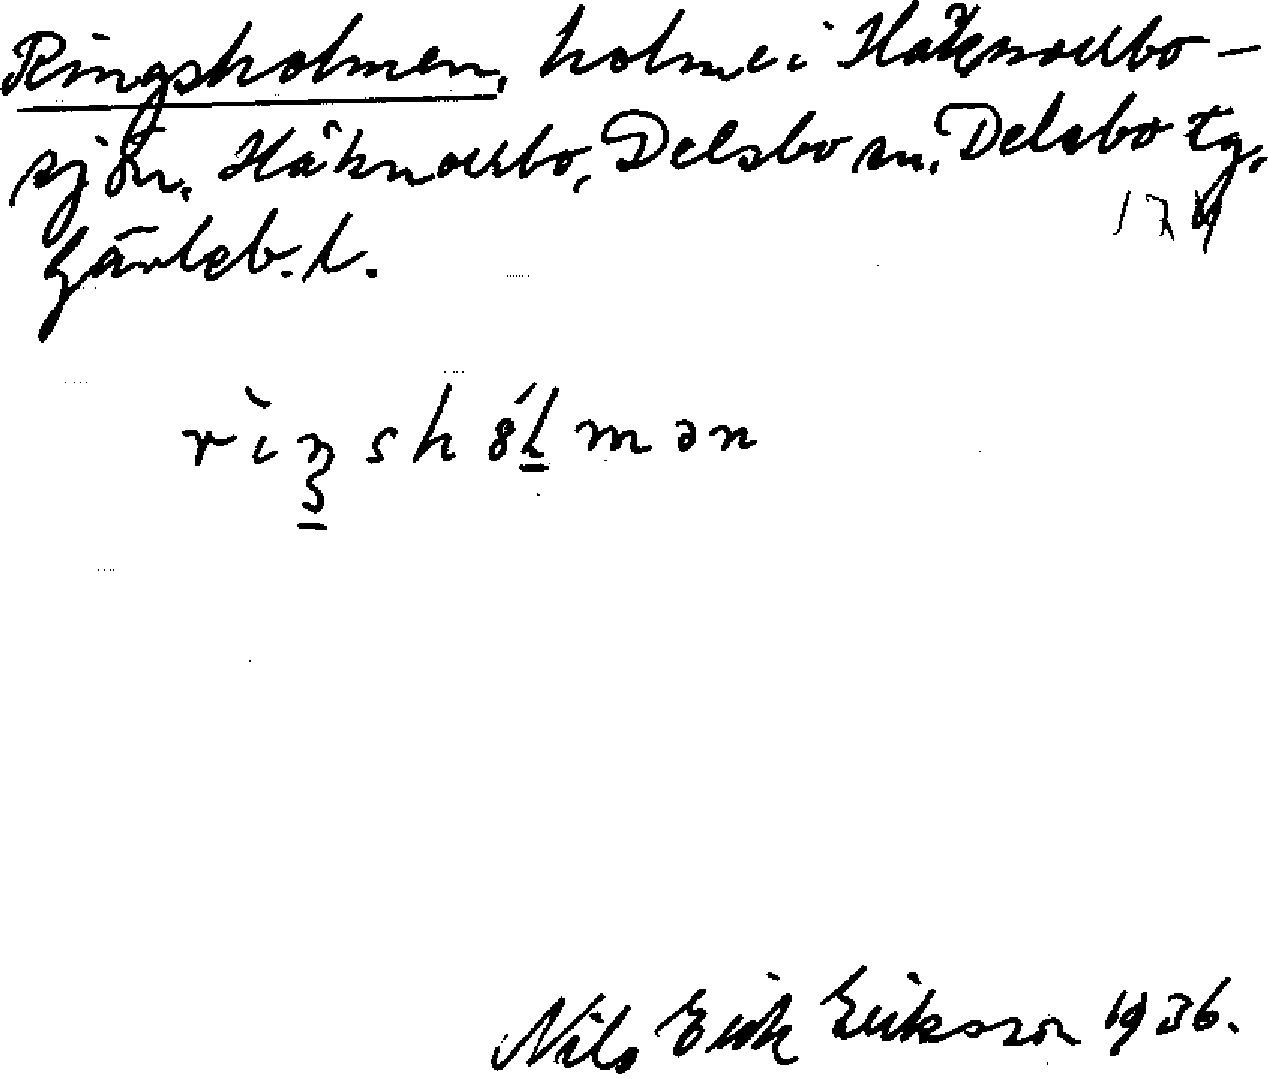 Ringsholmen, holme i Håknorrbo-
sjön, Håknorrbo, Delsbo sn, Delsbo tg,
Gävleb. l.
174
rìŋshólmən
Nils Erik Eriksson 1936.